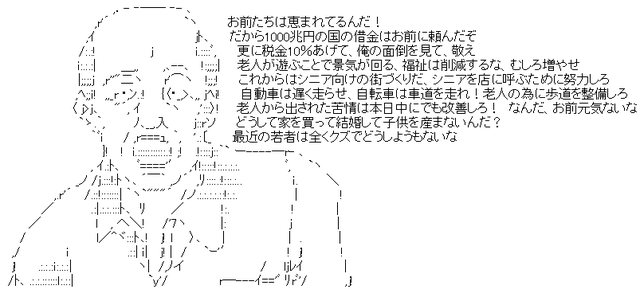 お前たちは恵まれてるんだ！
だから1000兆円の国の借金はお前に頼んだぞ
更に税金10％あげて、俺の面倒を見て、敬え
老人が遊ぶことで景気が回る、福祉は削減するな、むしろ増やせ
これからはシニア向けの街づくりだ、シニアを店に呼ぶために努力しろ
自動車は遅く走らせ、自転車は車道を走れ！老人の為に歩道を整備しろ
老人から出された苦情は本日中にでも改善しろ！　なんだ、お前元気ないな
どうして家を買って結婚して子供を産まないんだ？
最近の若者は全くクズでどうしようもないな